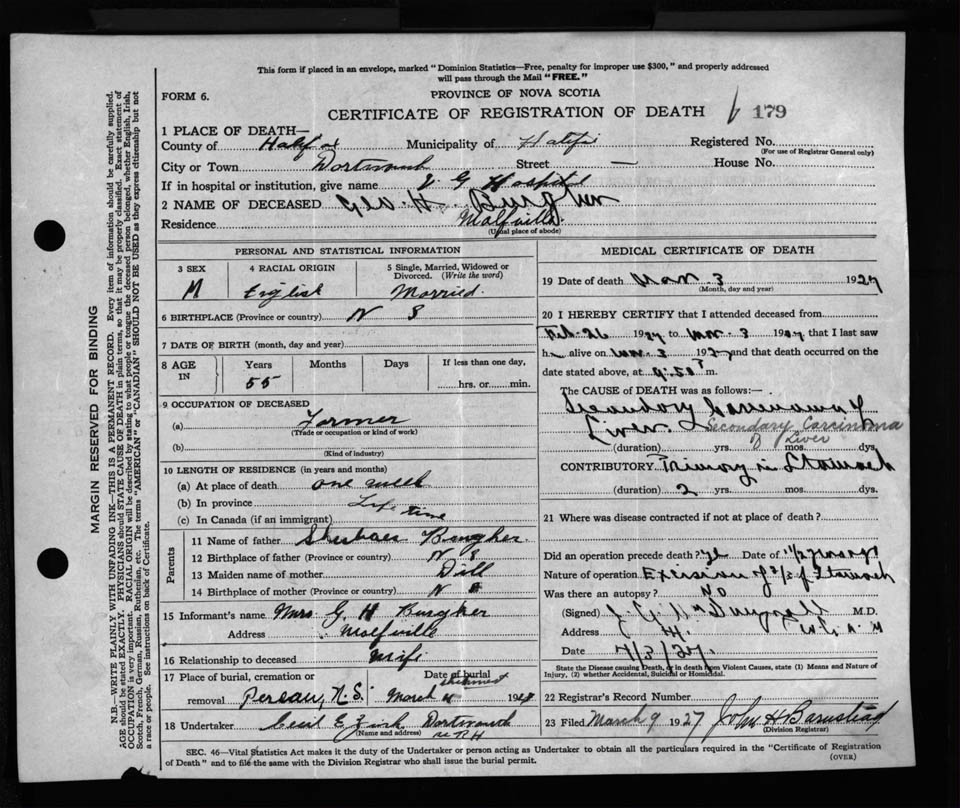 This form if placed in an envelope, marked "Dominion Statistics—Free, penalty for improper use $300," and properly addressed
will pass through the Mail "FREE."
FORM 6.
PROVINCE OF NOVA SCOTIA
CERTIFICATE OF REGISTRATION OF DEATH
179
1 PLACE OF DEATH—
County of Halifax Municipality of Halifx Registered No.
(For use of Registrar General only)
City or Town Dartmouth Street — House No.
If in hospital or institution, give name V G Hospital
2 NAME OF DECEASED Geo. H. Burgher
Residence Wolfville.
(Usual place of abode)
PERSONAL AND STATISTICAL INFORMATION
3 SEX 4 RACIAL ORIGIN 5 Single, Married, Widowed or Divorced. (Write the word)
M English Married.
6 BIRTHPLACE (Province or country) N S
7 DATE OF BIRTH (month, day and year)
8 AGE IN Years Months Days If less than one day,
55 hrs. or min.
9 OCCUPATION OF DECEASED
(a) Farmer
(Trade or occupation or kind of work)
(b)
(Kind of industry)
10 LENGTH OF RESIDENCE (in years and months)
(a) At place of death one week
(b) In province Life time
(c) In Canada (if an immigrant)
Parents
11 Name of father Burgher
12 Birthplace of father (Province or country) N S
13 Maiden name of mother Dill
14 Birthplace of mother (Province or country) N S
15 Informant's name Mrs G. H Burgher
Address Wolfville
16 Relationship to deceased Wife
17 Place of burial, cremation or Date of burial
shipment
removal Pereau, N.S. March 4 192
18 Undertaker Cecil E Zink Dartmouth
(Name and address)
MEDICAL CERTIFICATE OF DEATH
19 Date of death Mar. 3 1927
(Month, day and year)
20 I HEREBY CERTIFY that I attended deceased from
Feb. 26 1927 to Mar. 3 1927 that I last saw
h alive on Mar. 3 1927 and that death occurred on
date stated above, at 9.50 m.
The CAUSE of DEATH was as follows:—
Secondary Carcinoma of
Liver Secondary Carcinoma
of Liver
(duration) yrs. mos. dys.
CONTRIBUTORY Primary in Stomach
(duration) 2 yrs. mos. dys.
21 Where was disease contracted if not at place of death?
Did an operation precede death? Date of 1½ years ago
Nature of operation Excision of ⅔ of Stomach
Was there an autopsy? No
(Signed) M.D.
Address
Date 4/3/27.
State the Disease causing Death, or in death from Violent Causes, state (1) Means and Nature of
Injury, (2) whether Accidental, Suicidal or Homicidal.
22 Registrar's Record Number
23 Filed March 9 1927 John H Barnstead
(Division Registrar)
SEC. 46—Vital Statistics Act makes it the duty of the Undertaker or person acting as Undertaker to obtain all the particulars required in the "Certificate of Registration
of Death" and to file the same with the Division Registrar who shall issue the burial permit.
(OVER)
MARGIN RESERVED FOR BINDING
N.B.—WRITE PLAINLY WITH UNFADING INK—THIS IS A PERMANENT RECORD. Every item of information should be carefully supplied.
AGE should be stated EXACTLY. PHYSICIANS should STATE CAUSE OF DEATH in plain terms, so that it may be properly classified. Exact statement of
OCCUPATION is very important. RACIAL ORIGIN will be described by stating to what people or tongue the deceased person belonged, whether English, Irish,
Scotch, French, German, Russian, Ruthenian, etc. The terms "AMERICAN" or "CANADIAN" SHOULD NOT BE USED as they express citizenship but not
a race or people. See instructions on back of Certificate.